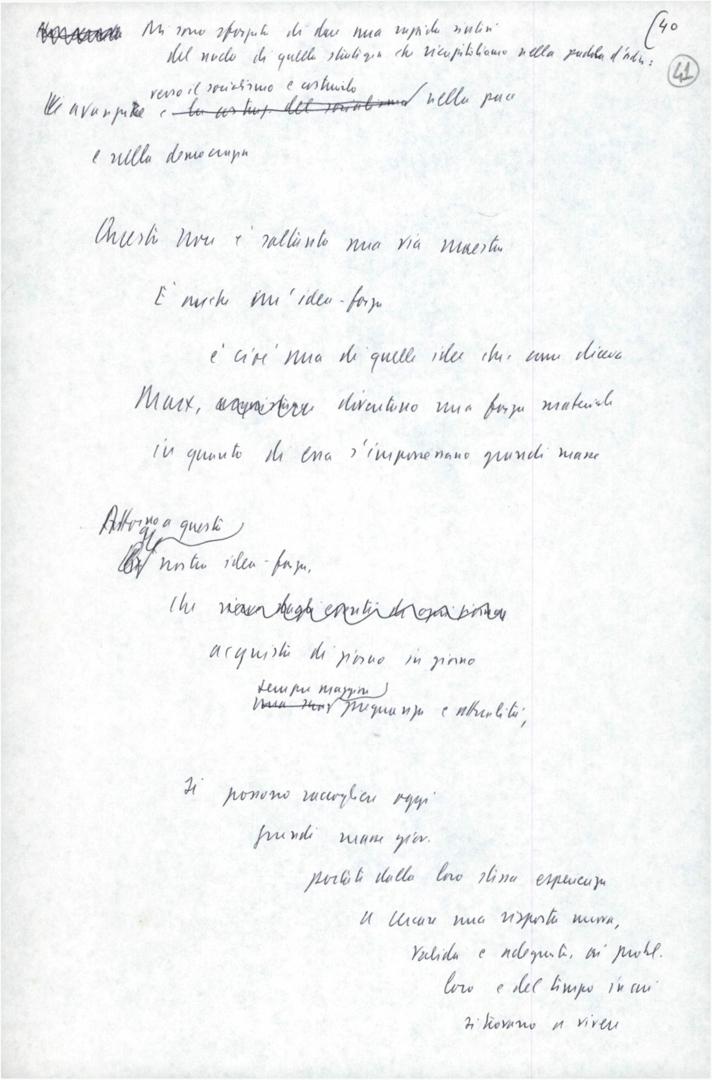 Mi sono sforzato di dare una rapida sintesi (40
del nodo di quella strategia che ricapitoliamo nella parola d'ordine: 41
verso il socialismo e costruirlo
avanzare e la costruz. del socialismo nella pace
e nella democrazia
Questa non è soltanto una via maestra
È anche un'idea-forza
è cioè una di quelle idee che, come diceva
Marx, diventano una forza materiale
in quanto di essa s'impossessano grandi masse
Attorno a questa
nostra idea-forza,
che
acquista di giorno in giorno
sempre maggiore
pregnanza e attualità,
si possono raccogliere oggi
grandi masse giov.
portati dalla loro stessa esperienza
a cercare una risposta nuova,
valida e adeguata, ai probl.
loro e del tempo in cui
si trovano a vivere